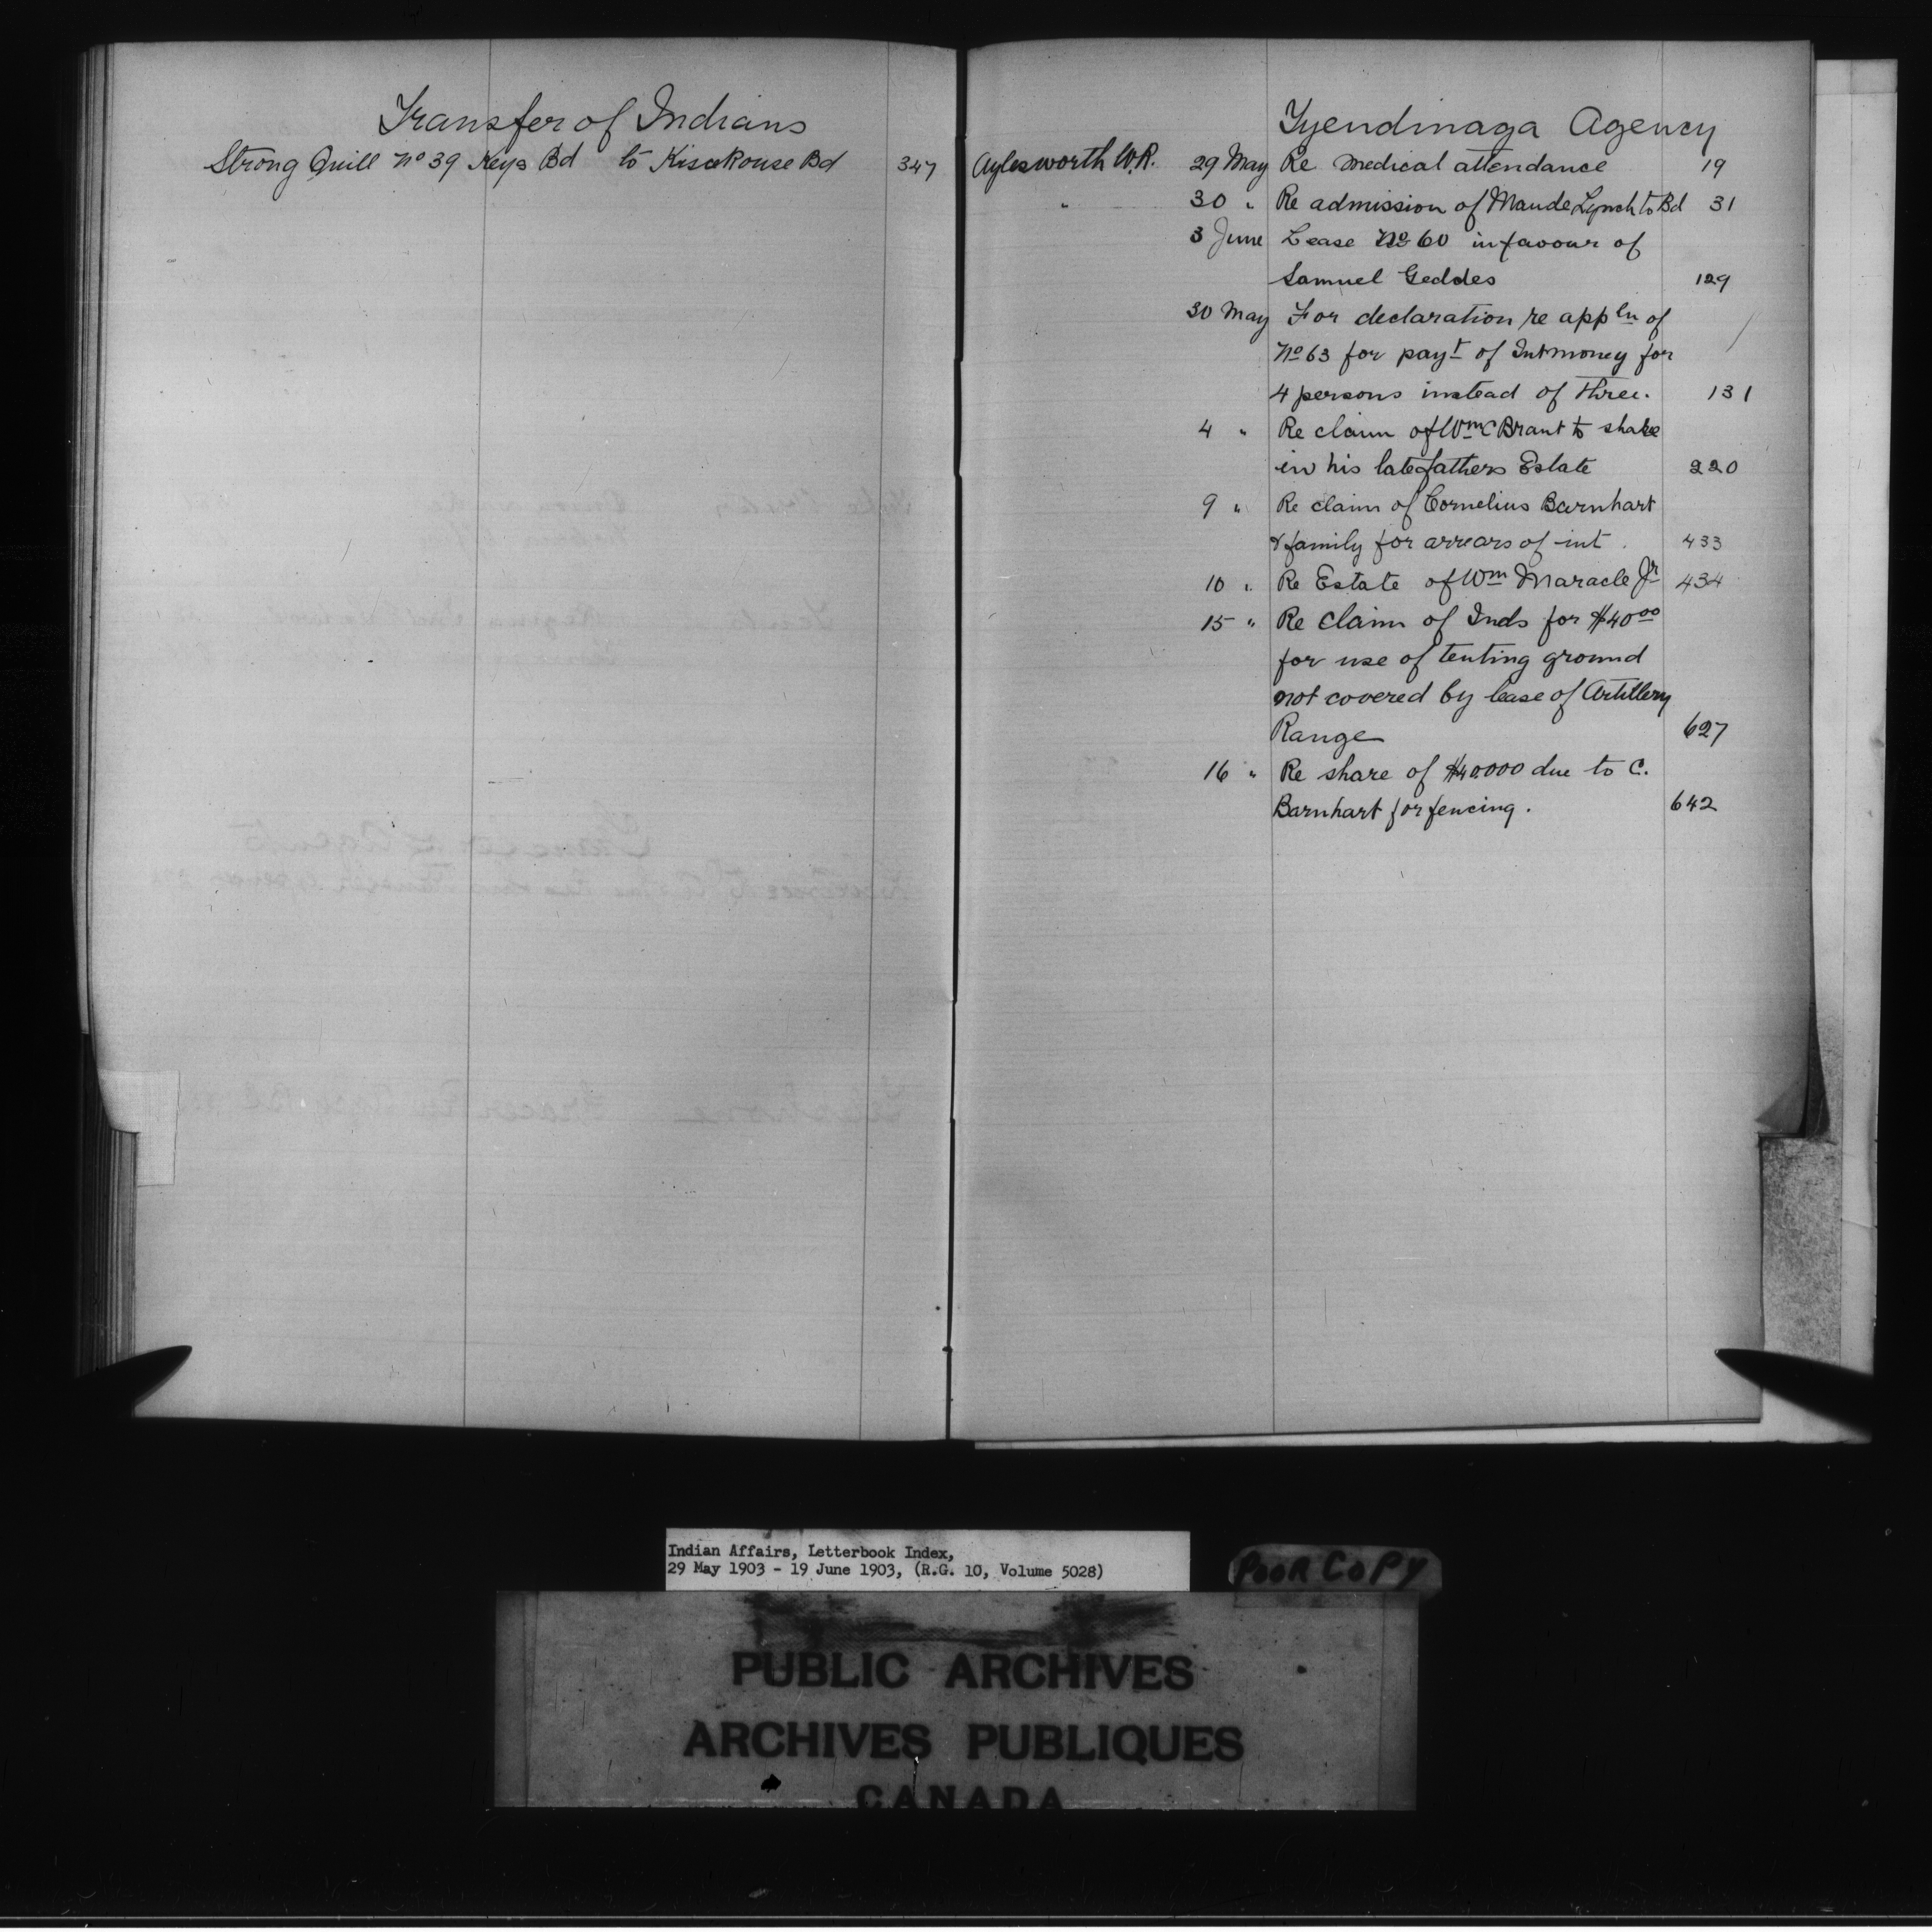 Transfer of Indians
Strong Quill No 39 Keys Bd to Kisickouse Bd 347
Tyendinaga Agency
Aylesworth W.R. 29 May Re medical attendance 19
" 30 " Re admission of Maude Lynch to Bd 31
3 June Lease No 60 in favour of
Samuel Geddes 129
30 May For declaration re appln of
No 63 for payt of Int money for
4 persons instead of three. 131
4 " Re claim of Wm C Brant to share
in his late fathers Estate 220
9 " Re claim of Cornelius Barnhart
& family for arrears of int. 433
10 " Re Estate of Wm Maracle Jr 434
15 " Re claim of Inds for $40 00
for use of tenting ground
not covered by lease of Artillery
Range 627
16 " Re share of $40.000 due to C.
Barnhart for fencing. 642
Indian Affairs, Letterbook Index,
29 May 1903 - 19 June 1903, (R.G. 10, Volume 5028)
POOR COPY
PUBLIC ARCHIVES
ARCHIVES PUBLIQUES
CANADA